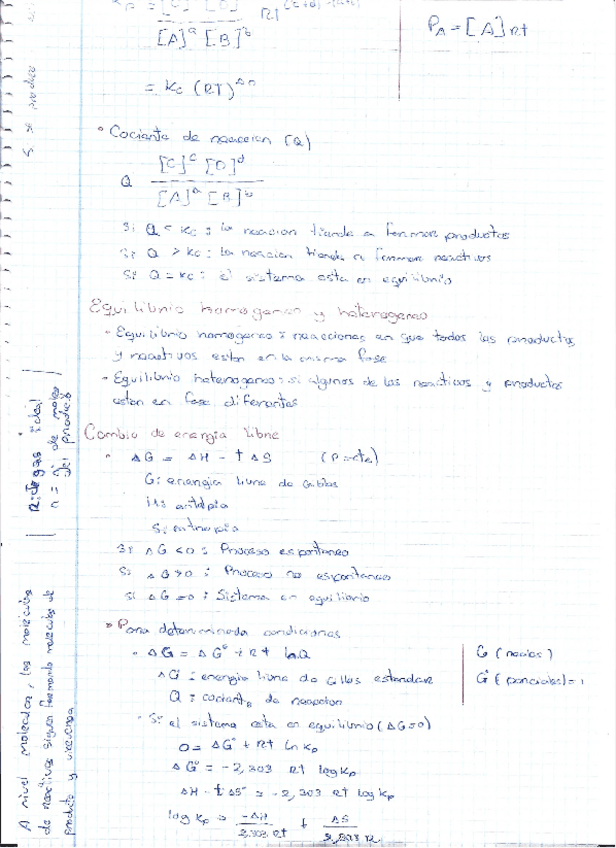 [A]ᵃ [B]ᵇ
P_A = [A] Rt
= Kc (RT)^Δn
• Cociente de reaccion (Q)
Q [C]ᶜ [D]ᵈ
[A]ᵃ [B]ᵇ
Si Q < Kc : la reaccion tiende a formar productos
Si Q > Kc : la reaccion tiende a formar reactivos
Si Q = Kc : el sistema esta en equilibrio
Equilibrio homogeneo y heterogeneo
• Equilibrio homogeneo : reacciones en que todos los productos
y reactivos estan en la misma fase
• Equilibrio heterogeneo : si algunos de los reactivos y productos
estan en fase diferentes
Cambio de energia libre
• ΔG = ΔH - t ΔS (P=cte)
G : energia libre de Gibbs
H : entalpia
S : entropia
Si ΔG < 0 : Proceso espontaneo
Si ΔG > 0 : Proceso no espontaneo
Si ΔG = 0 : Sistema en equilibrio
• Para determinada condiciones
• ΔG = ΔG° + Rt lnQ
ΔG° : energia libre de Gibbs estandar
Q : cociente de reaccion
• Si el sistema esta en equilibrio (ΔG=0)
0 = ΔG° + Rt ln Kp
ΔG° = -2,303 Rt log Kp
ΔH - t ΔS = -2,303 Rt log Kp
log Kp = -ΔH / 2,303 Rt + ΔS / 2,303 R
G° (parciales) = 1
R: de gas ideal
n = N° de moles
del producto
A nivel molecular, las moleculas
de reactivos siguen formando moleculas de
producto y viceversa